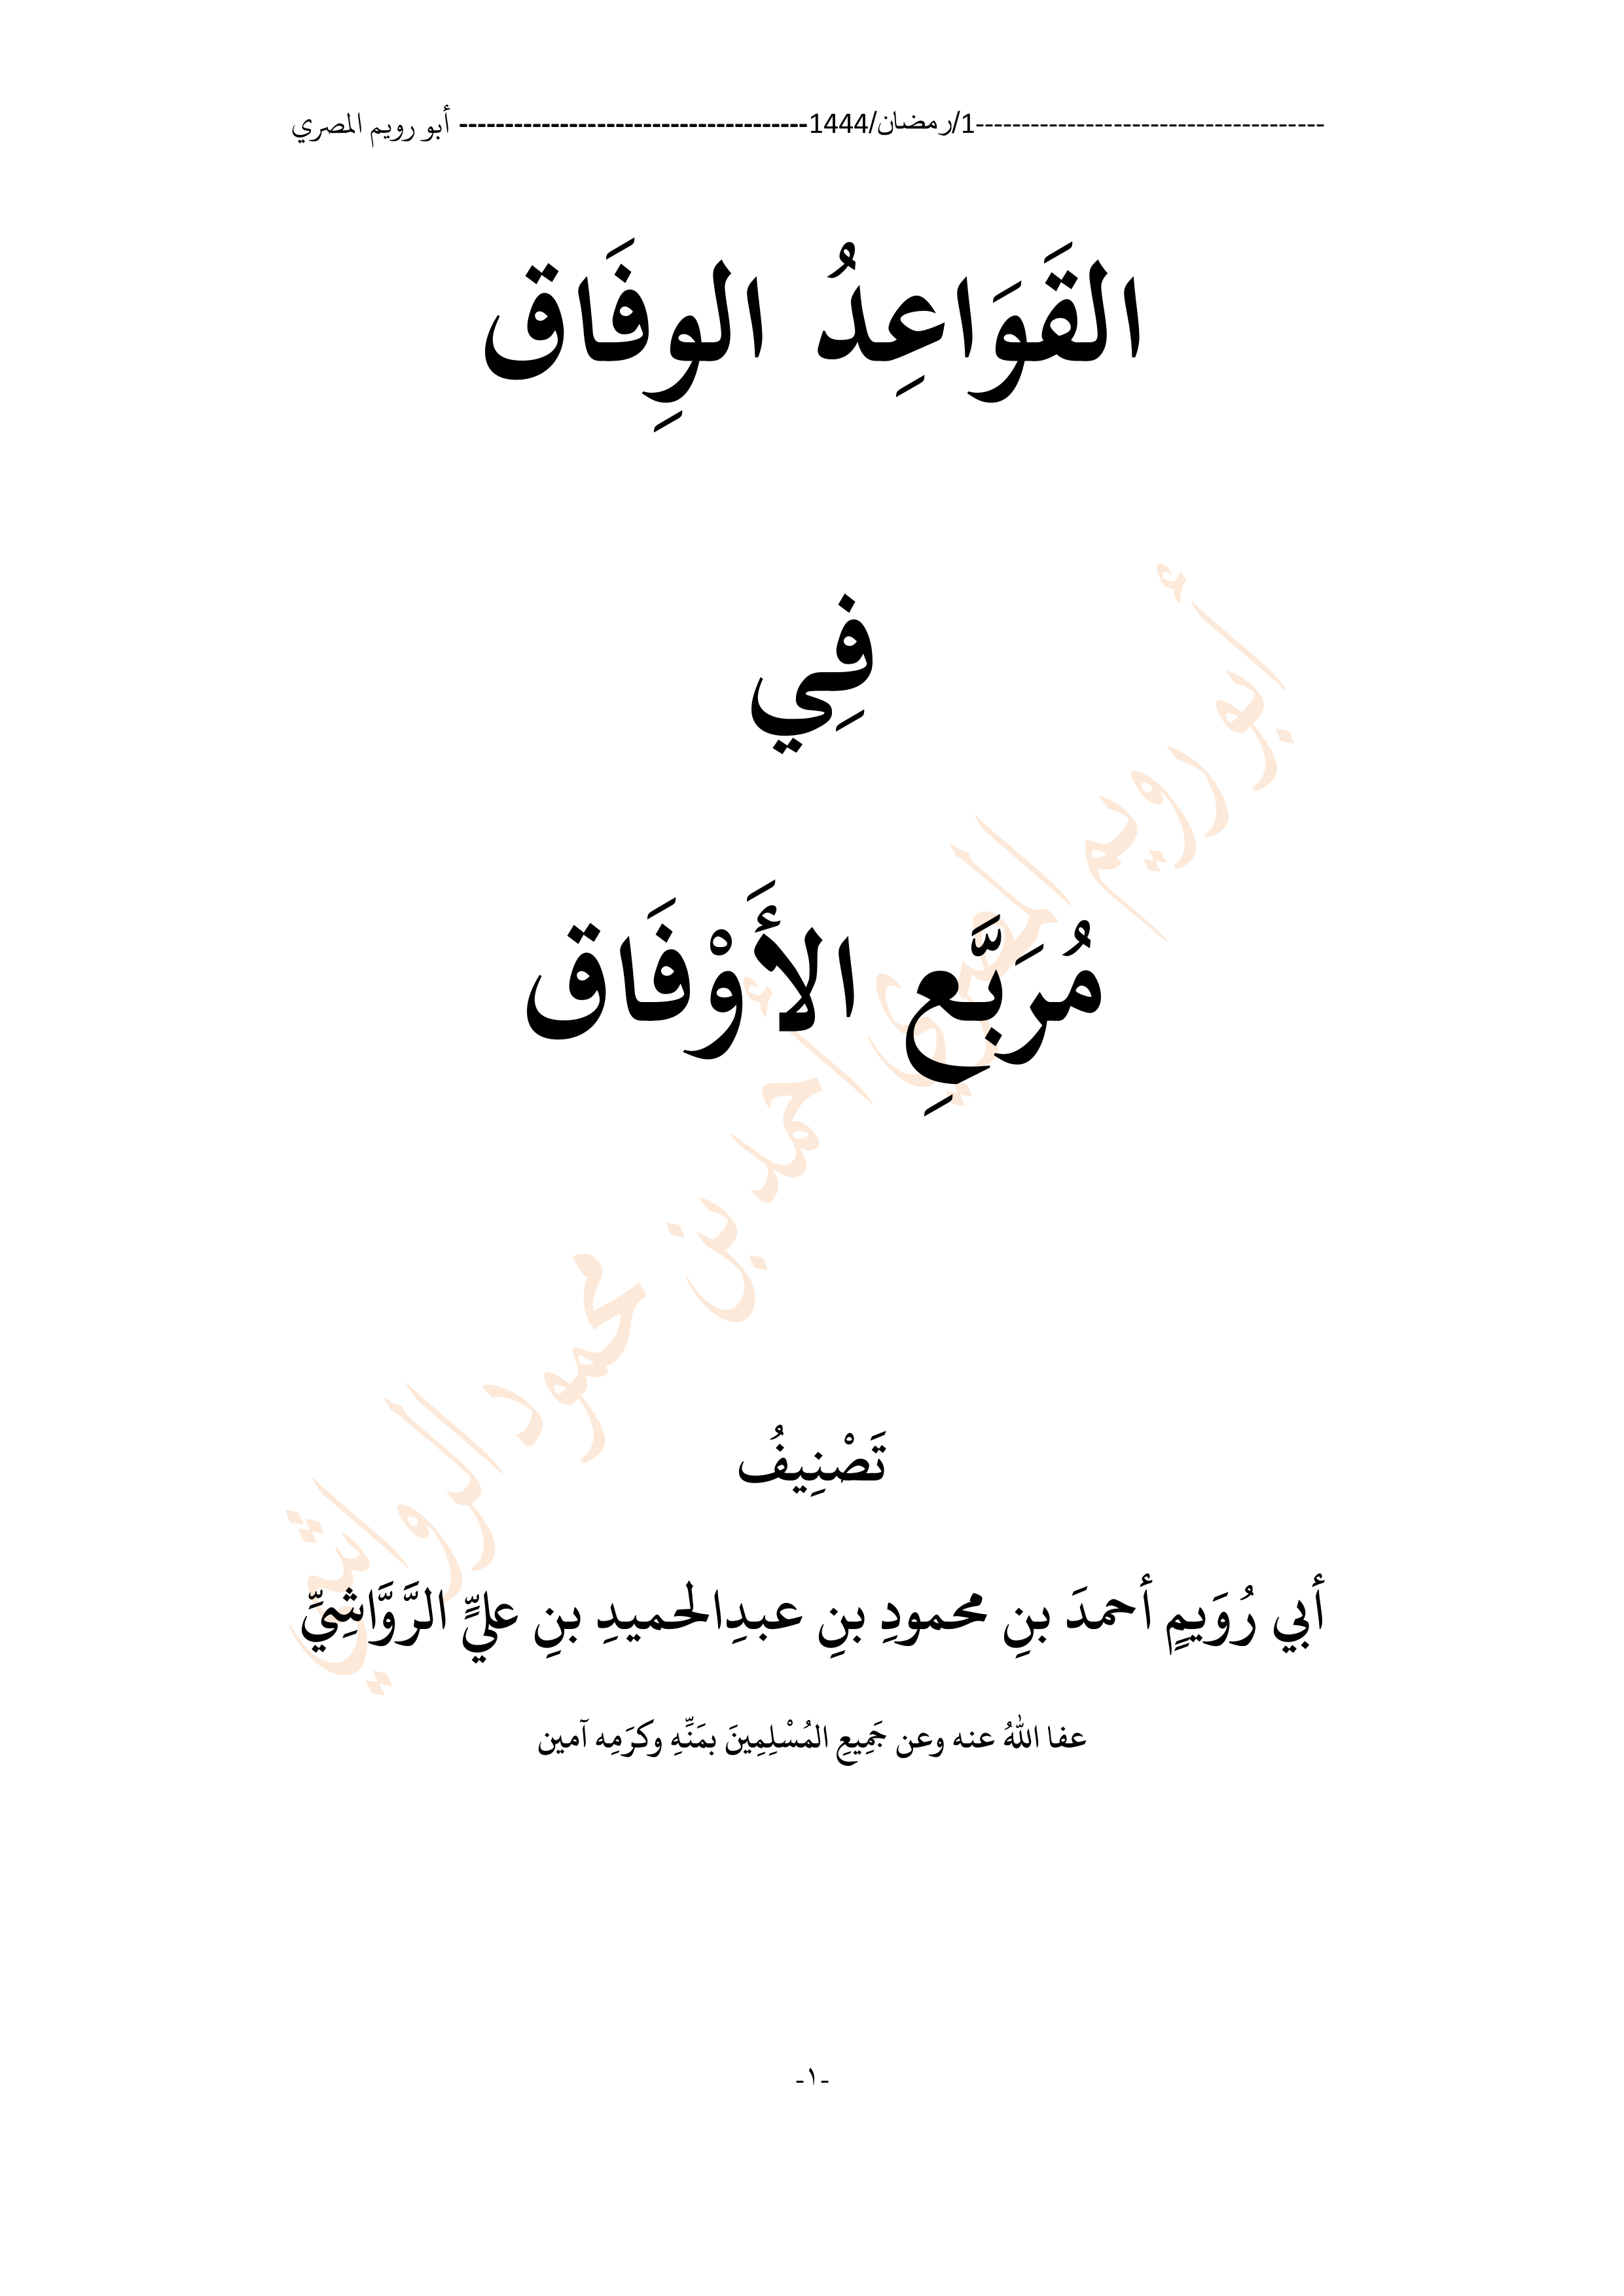 --------------------------------------1/رمضان/1444-------------------------------------- أبو رويم المصري
القَوَاعِدُ الوِفَاق
فِي
مُرَبَّعِ الأَوْفَاق
تَصْنِيفُ
أبي رُوَيمٍ أحمدَ بنِ محمودِ بنِ عبدِالحميدِ بنِ عليٍّ الرَّوَّاشِيِّ
عفا اللهُ عنه وعن جَمِيعِ المُسْلِمِينَ بمَنِّهِ وكرَمِه آمين
أبو رويم المصري أحمد بن محمود الرواشي
-١-